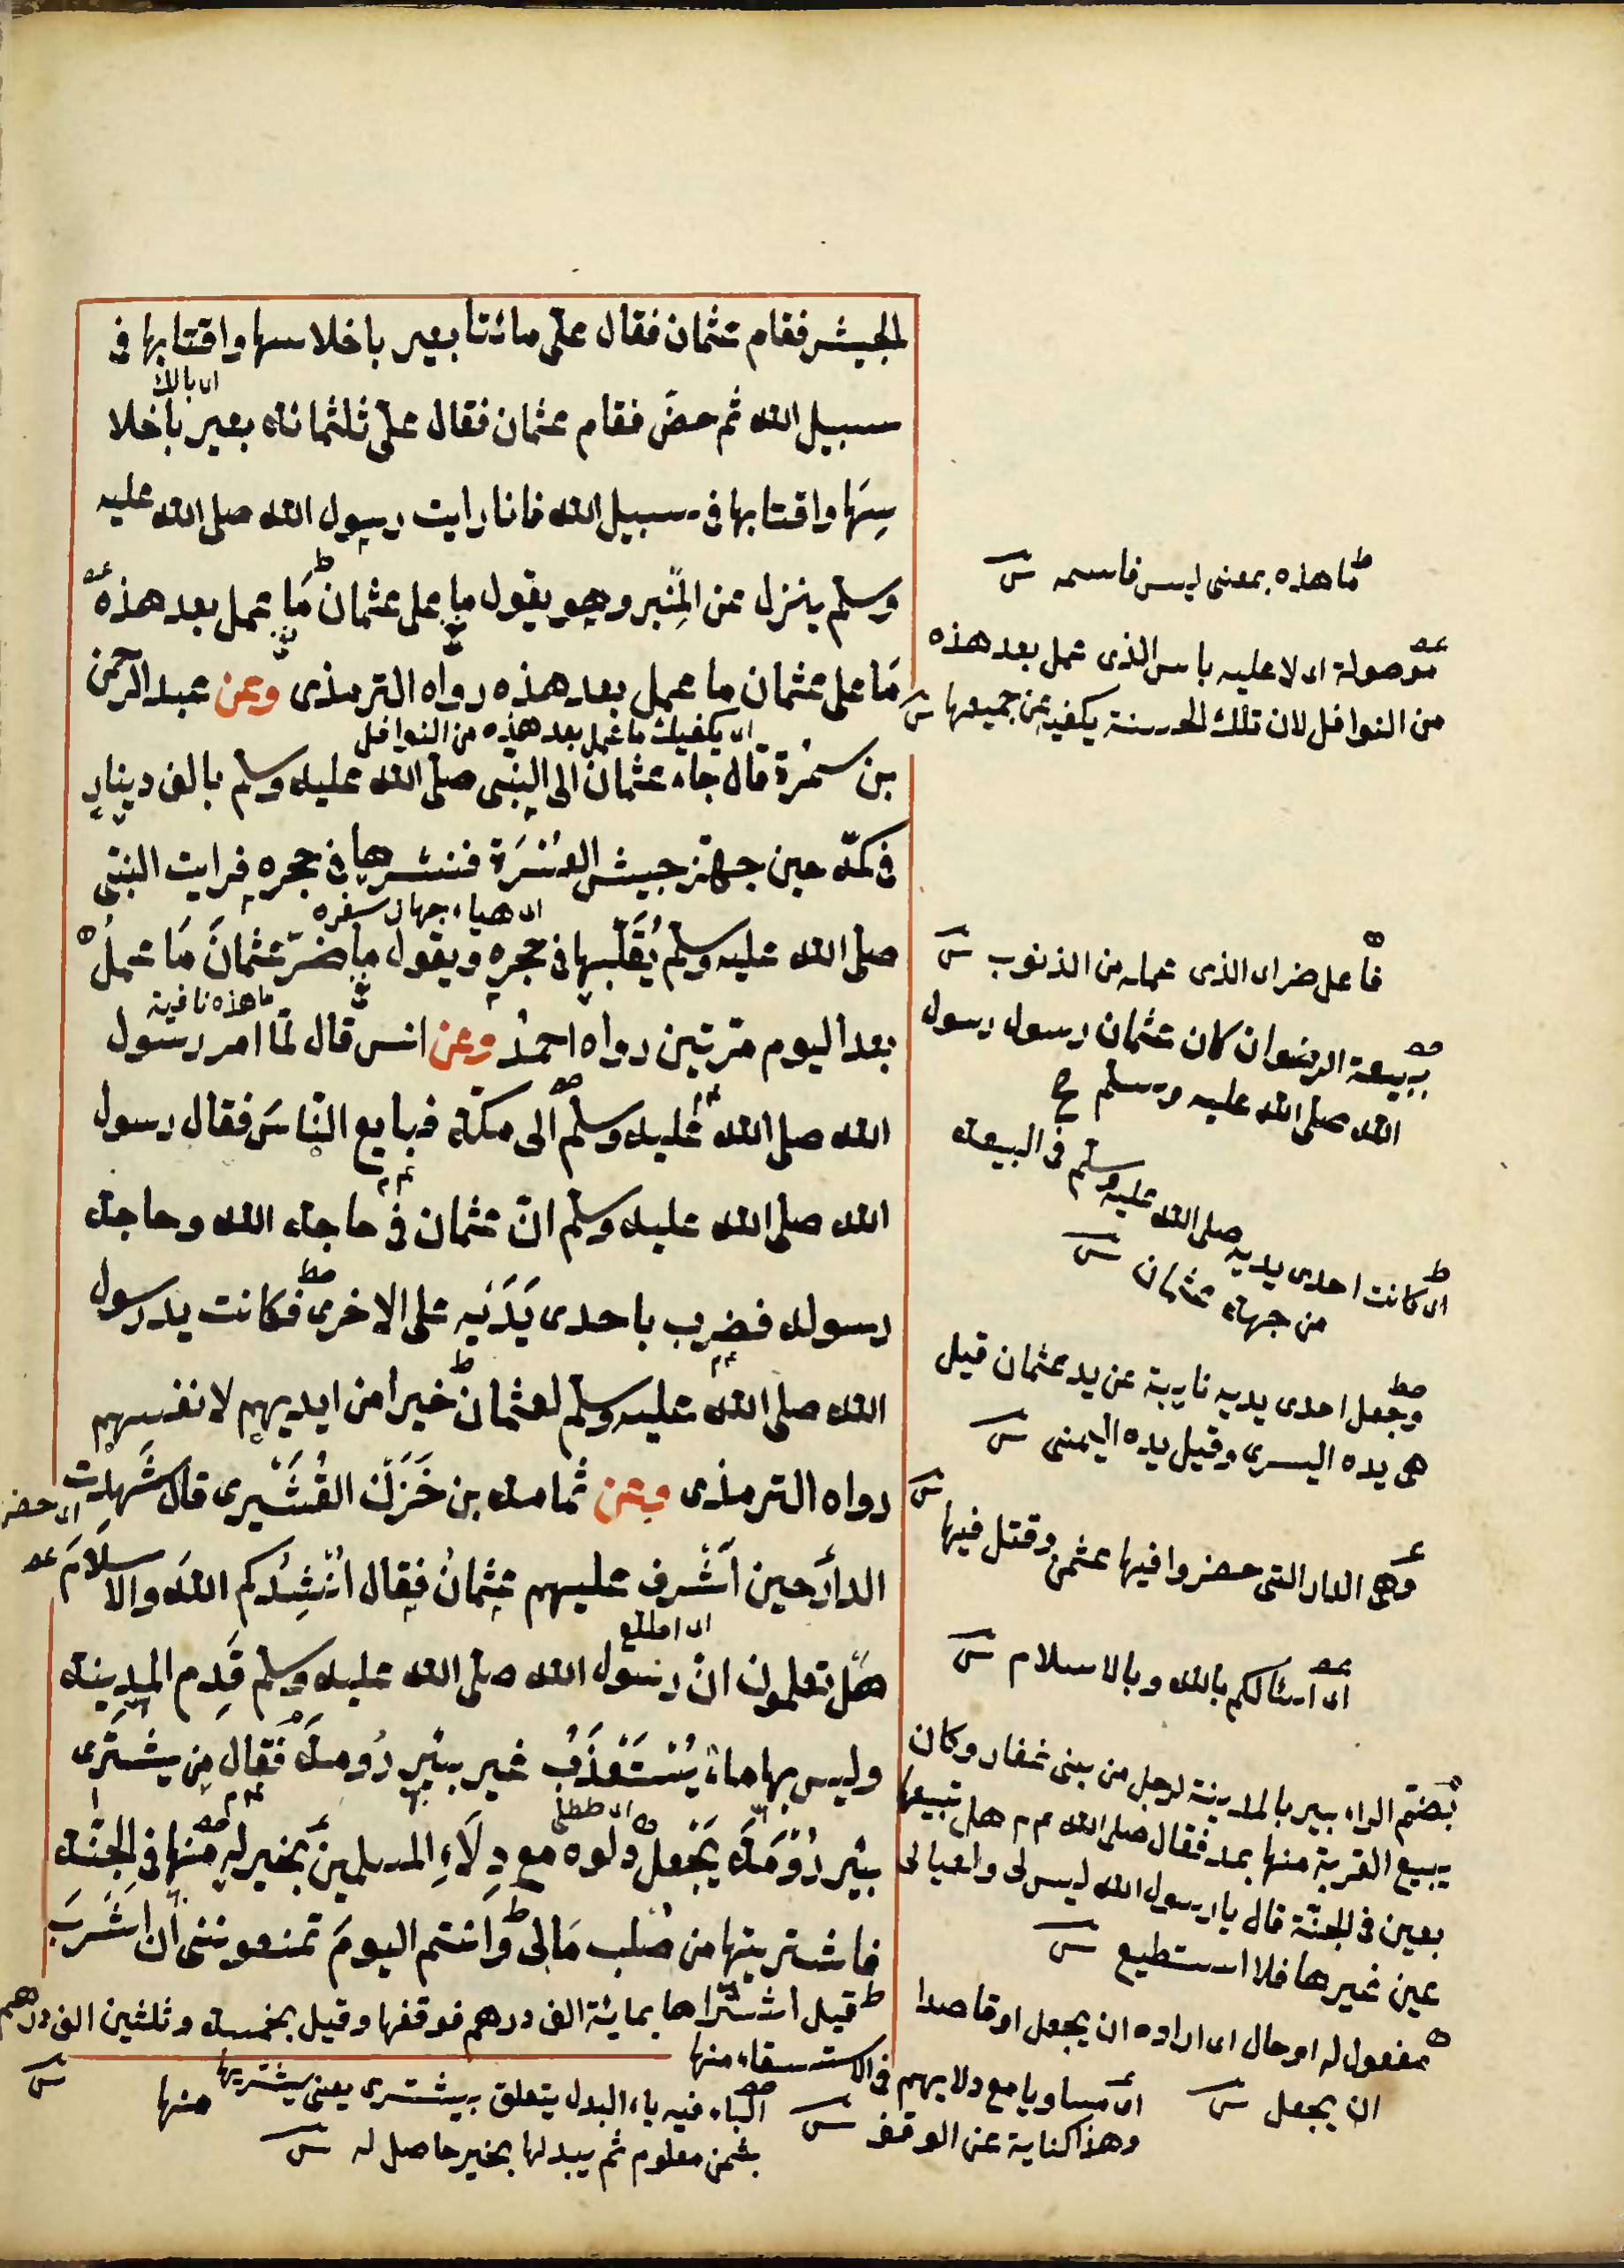 الجيش فقام عثمان فقال علىّ مائتا بعير باخلاسها واقتابها فى
سبيل الله ثم حضّ فقام عثمان فقال علىّ ثلثمائة بعير باخلا
سِهَا واقتابها فى سبيل الله فانا رايت رسول الله صلى الله عليه
وسلم ينزل عن المِنبر وهو يقول ما على عثمان مَا عمل بعد هذهِ
مَا على عثمان ما عمل بعد هذه رواه الترمذى وعن عبد الرحمن
اى يكفيك ما عمل بعد هذه من النوافل
بن سمُرة قال جاء عثمان الى النبى صلى الله عليه وسلم بالف دينارٍ
فى كمّه حين جهّز جيش العُسْرَة فنشرها فى حجره فرايت النبى
اى هياء جهاز سفره
صلى الله عليه وسلم يُقَلّبها فى حجرهِ ويقول ما ضرّ عثمانَ مَا عملَ
ما هذه نافية
بعد اليوم مرّتين رواه احمدُ وعن انس قال لمّا امر رسول
الله صلى الله عليه وسلم الى مكّة فبايع النّاسَ فقال رسول
الله صلى الله عليه وسلم انّ عثمان فى حاجة الله وحاجة
رسوله فضرب باحدى يَدَيْهِ على الاخرى فكانت يد رسول
الله صلى الله عليه وسلم لعثمان خيرا من ايديهم لانفسهم
رواه الترمذى وعن ثمامة بن حَزَن القُشَيْرى قال شَهِدْت
اى حضر
الدارَ حين اَشْرف عليهم عثمانُ فقال اُنْشِدُكم اللهَ والاسلامَ
اى اطلع
هَل تعلمون انّ رسول الله صلى الله عليه وسلم قَدِم المدينة
وليس بها ماء يُسْتَعْذَبُ غير بئرِ رُومة فقال من يشترى
بئر رُوْمَةَ يَجْعلُ دلوه مع دِلَاءِ المسلمين بخير له منها فى الجنّة
فاشتريتها من صُلب مَالى وَانتم اليومَ تمنعوننى أن اَشْرَبَ
قيل اشتراها بمائة الف درهم فوقفها وقيل بخمسة وثلثين الف درهم
ما هذه بمعنى ليس فاسمه
موصولة اى لا عليه باس الذى عمل بعد هذه
من النوافل لان تلك الحسنة يكفيه عن جميعها
فاعل ضر اى الذى عمله من الذنوب
ببيعة الرضوان كان عثمان رسول رسول
الله صلى الله عليه وسلم
اى كانت احدى يديه صلى الله عليه وسلم فى البيعة
من جهة عثمان
وجعل احدى يديه نايبة عن يد عثمان قيل
هى يده اليسرى وقيل يده اليمنى
وهى الدار التى حضروا فيها عثمن وقتل فيها
اى اسئالكم بالله وبالاسلام
بضم الراء بير بالمدينة لرجل من بنى غفار وكان
يبيع القربة منها بمد فقال صلى الله عم هل تبيعها
بعين فى الجنّة قال يا رسول الله ليس لى ولعيالى
عين غيرها فلا استطيع
مفعول له او حال اى اراده ان يجعل او قاصدا
ان يجعل
اى مساويا مع دلايهم فى الاستسقاء منها
وهذا كناية عن الوقف
الباء فيه باء البدل يتعلق بيشترى يعنى يشتريها منها
بثمن معلوم ثم يبدلها بخير حاصل له